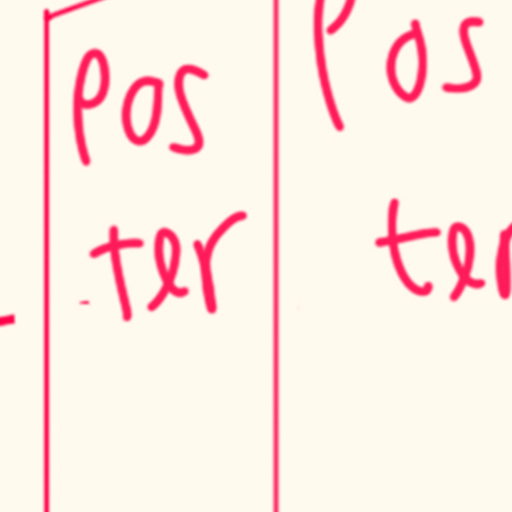 Pos
ter
Pos
ter